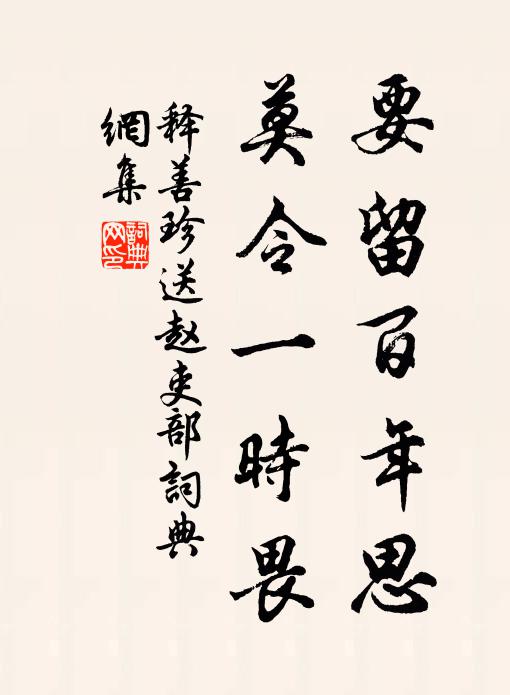 要留百年思
莫令一時畏
释善珍送赵吏部詞典
網集
詞典網印